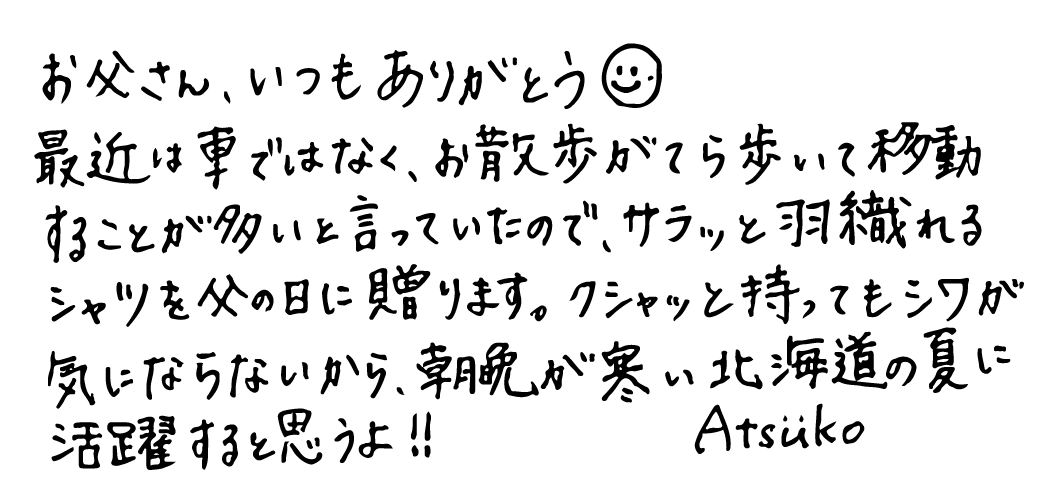 お父さん、いつもありがとう
最近は車ではなく、お散歩がてら歩いて移動
することが多いと言っていたので、サラッと羽織れる
シャツを父の日に贈ります。クシャッと持ってもシワが
気にならないから、朝晩が寒い北海道の夏に
活躍すると思うよ!!
Atsüko